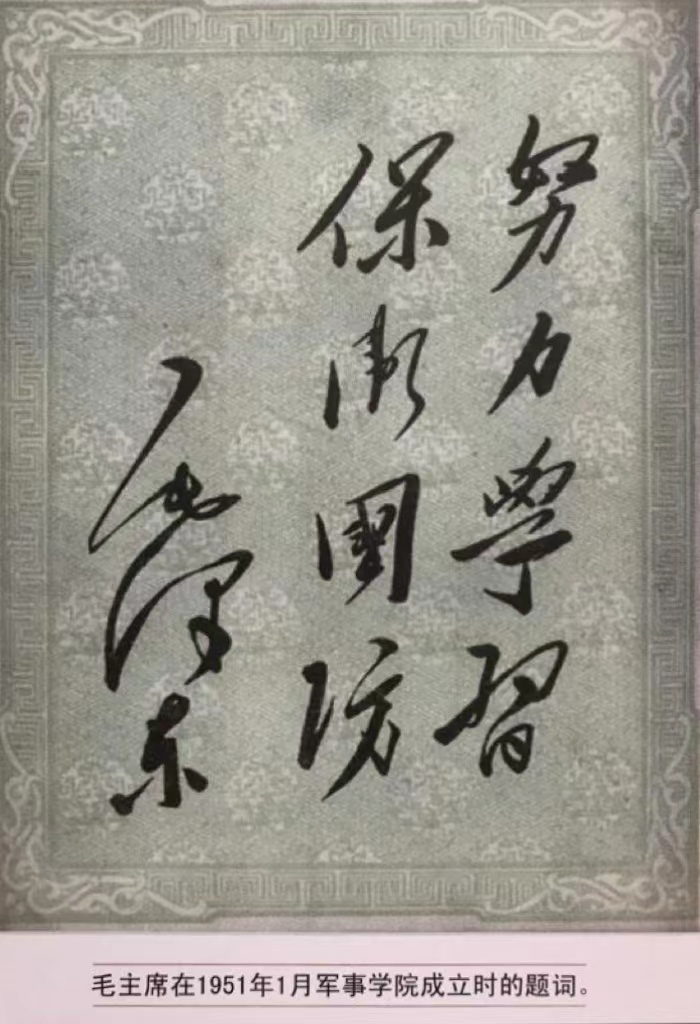 努力學習
保衛國防
毛澤东
毛主席在1951年1月军事学院成立时的题词。